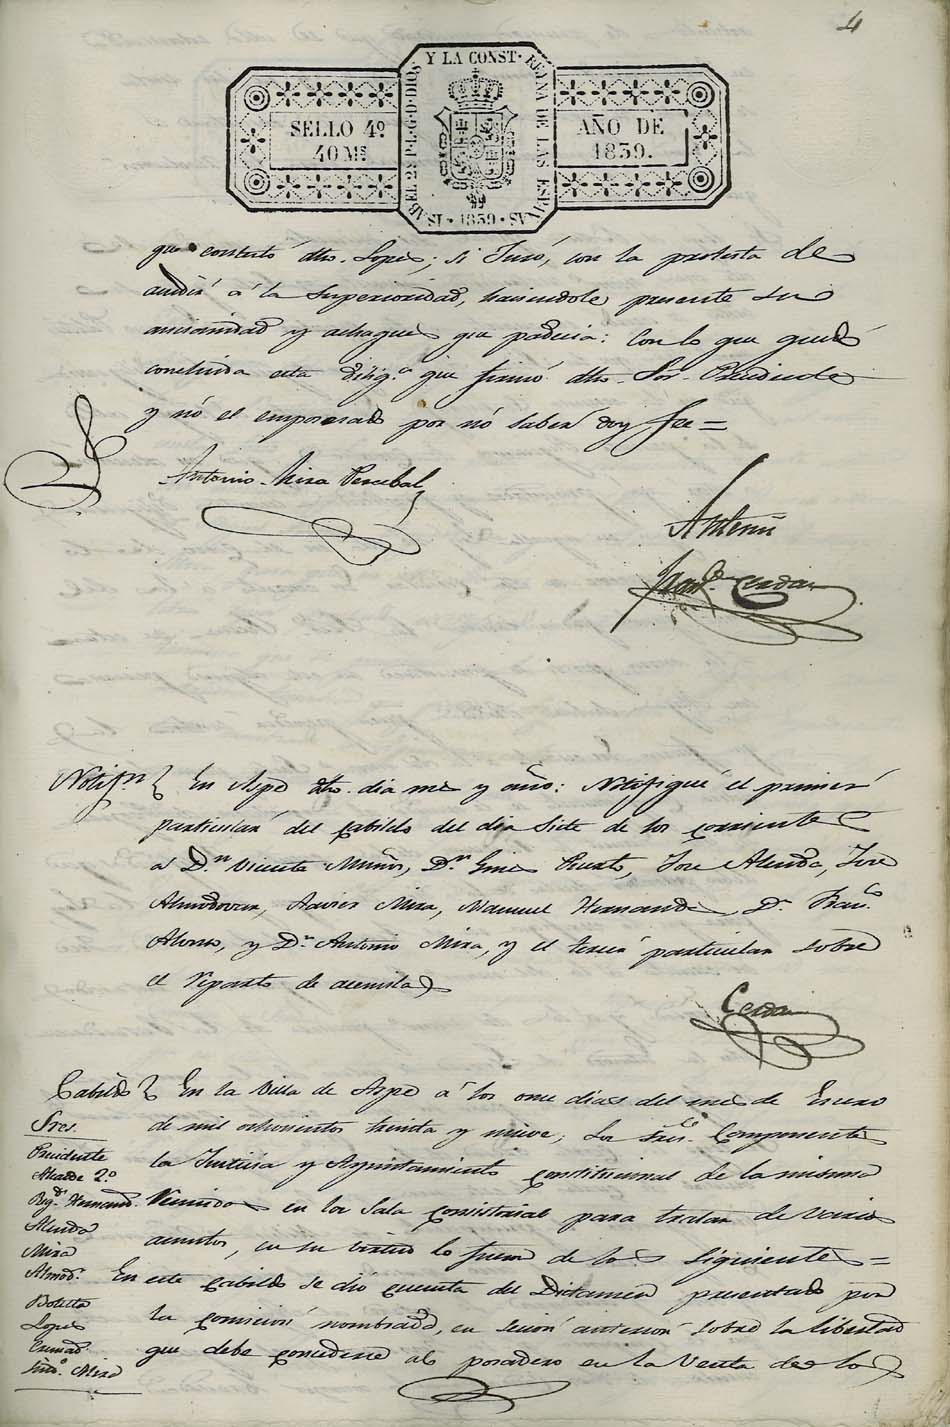 4
SELLO 4º
40 Ms
ISABEL 2ª P. L. G. D. DIOS Y LA CONST. REYNA DE LAS ESPAÑAS
1839
AÑO DE
1839.
que contestó dho. Lopes; si Juró, con la protesta de
acudir á la Superioridad, haciendole presente su
ancianidad y achaques que padecia: Con lo que quedó
concluida esta dilig.ª que firmó dho. Sor. Presidente
y nó el emposesado por nó saber doy fee=
Antonio Mira Percebal
Antemi
Franco. Cerdan
Notifn. En Aspe dho. dia mes y año: Notifiqué el primer
particular del Cabildo del dia Siete de los corrientes
á Dn. Vicente Muños, Dn. Gines, Jose Alenda, Jose
Almodovar, Xavier Mira, Manuel Hernandes, Dn. Franco.
Alonso, y Dn. Antonio Mira, y el tercer particular sobre
el reparto de
Cerdan
Cabildo En la Villa de Aspe á los once dias del mes de Enero
Sres. de mil ochocientos treinta y nueve; Los Sres. Componentes
Presidente la Justicia y Ayuntamiento constitucional de la misma
Alcalde 2º
Regdr. Hernand. Reunidos en la Sala Consistorial para tratar de varios
Alenda
Mira asuntos, en su virtud lo fueron de los siguientes=
Almodr. En este Cabildo se dió cuenta del Dictamen presentado por
Botella
Lopes la comision nombrada, en sesion anterior sobre la libertad
que debe concederse al posadero en la Venta de lo
Sindo. Mira